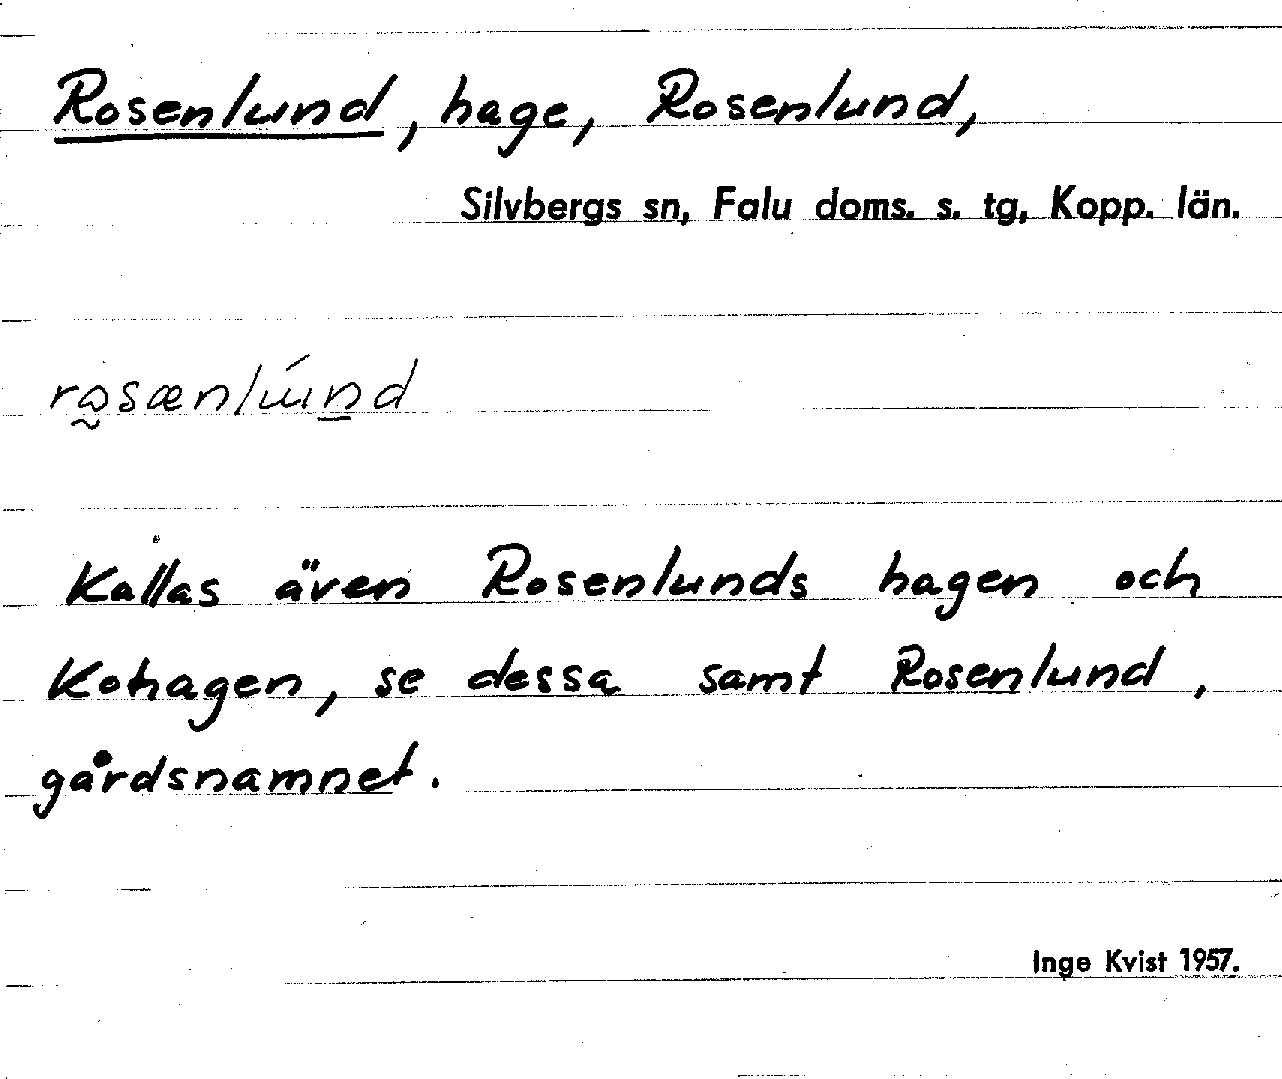 Rosenlund, hage, Rosenlund,
Silvbergs sn, Falu doms. s. tg, Kopp. län.
rosænlúnd
Kallas även Rosenlunds hagen och
Kohagen, se dessa samt Rosenlund,
gårdsnamnet.
Inge Kvist 1957.